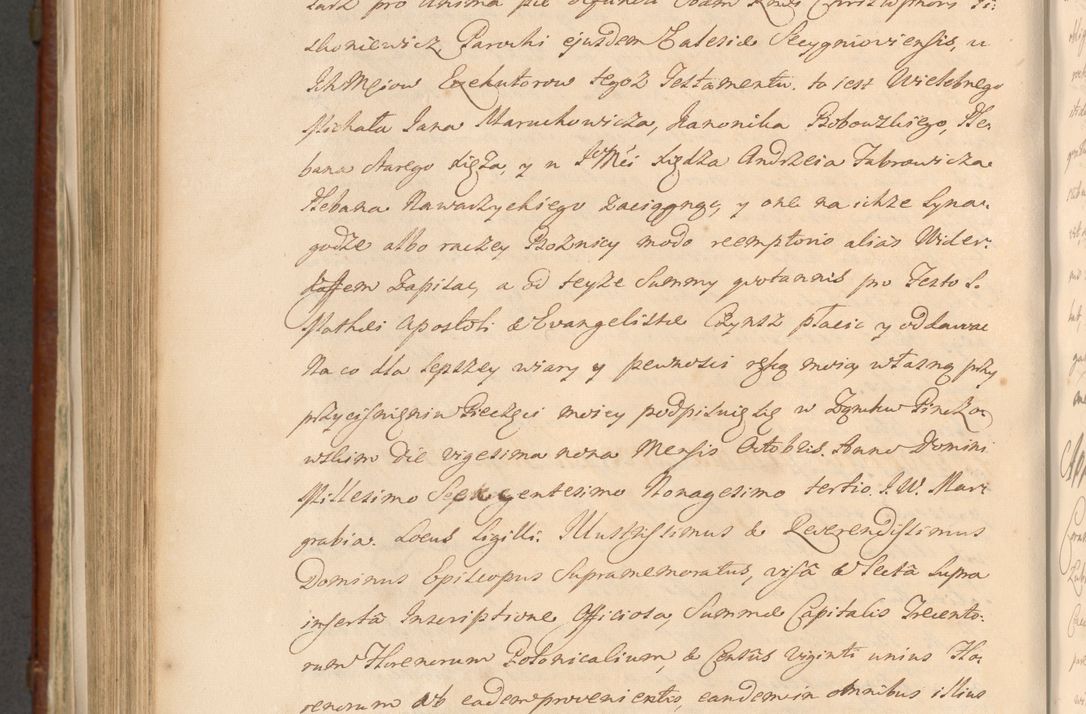 pro Anima pie defuncti
skoniewicz Parochi ejusdem Ecclesiæ Secygnioviensis, u
Ich Mciow Exekutorow tegoz Testamentu. to iest Wielebnego
Michała Jana Maruchowicza, Kanonika Bobowskiego, Ple-
bana Starego Sącza, y u JWMci Xiędza Andrzeia Jabrowicza
Plebana Nawarzyckiego zaciągnął, y one na ichze Syna-
godze albo raczey Boznicy modo reemptorio alias Wider-
daffem Zapisac, a od teyze Summy quotannis po Festo S.
Mathæi Apostoli & Evangelistæ Czynsz płacic y oddawac
Na co dla lepszey wiary y pewnosci ręką moią własną przy
przycisnieniu Pieczęci moiey podpisuię się w Zamku Pinczo-
wskim die vigesima nona Mensis Octobris. Anno Domini
Millesimo Septingentesimo Nonagesimo tertio. J. W. Mar-
grabia. Locus Sigilli. Illustrissimus & Reverendissimus
Dominus Episcopus Supramemoratus, visâ & lectâ supra
insertâ Inscriptione Officiosa, Summæ Capitalis Trecento-
rum Florenorum Polonicalium, & Censûs viginti unius Flo-
renorum ab eadem provenientis, eandem in omnibus illius